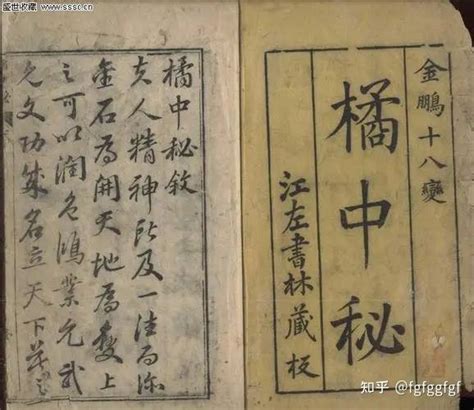 盛世收藏 www.sssc.cn
金鵬十八變
橘中秘
江左書林藏板
橘中秘敘
夫人精神所及一往而深
金石為開天地為變上
之可以潤色鴻業允武
允文功成名立天下
知乎 @fgfggfgf